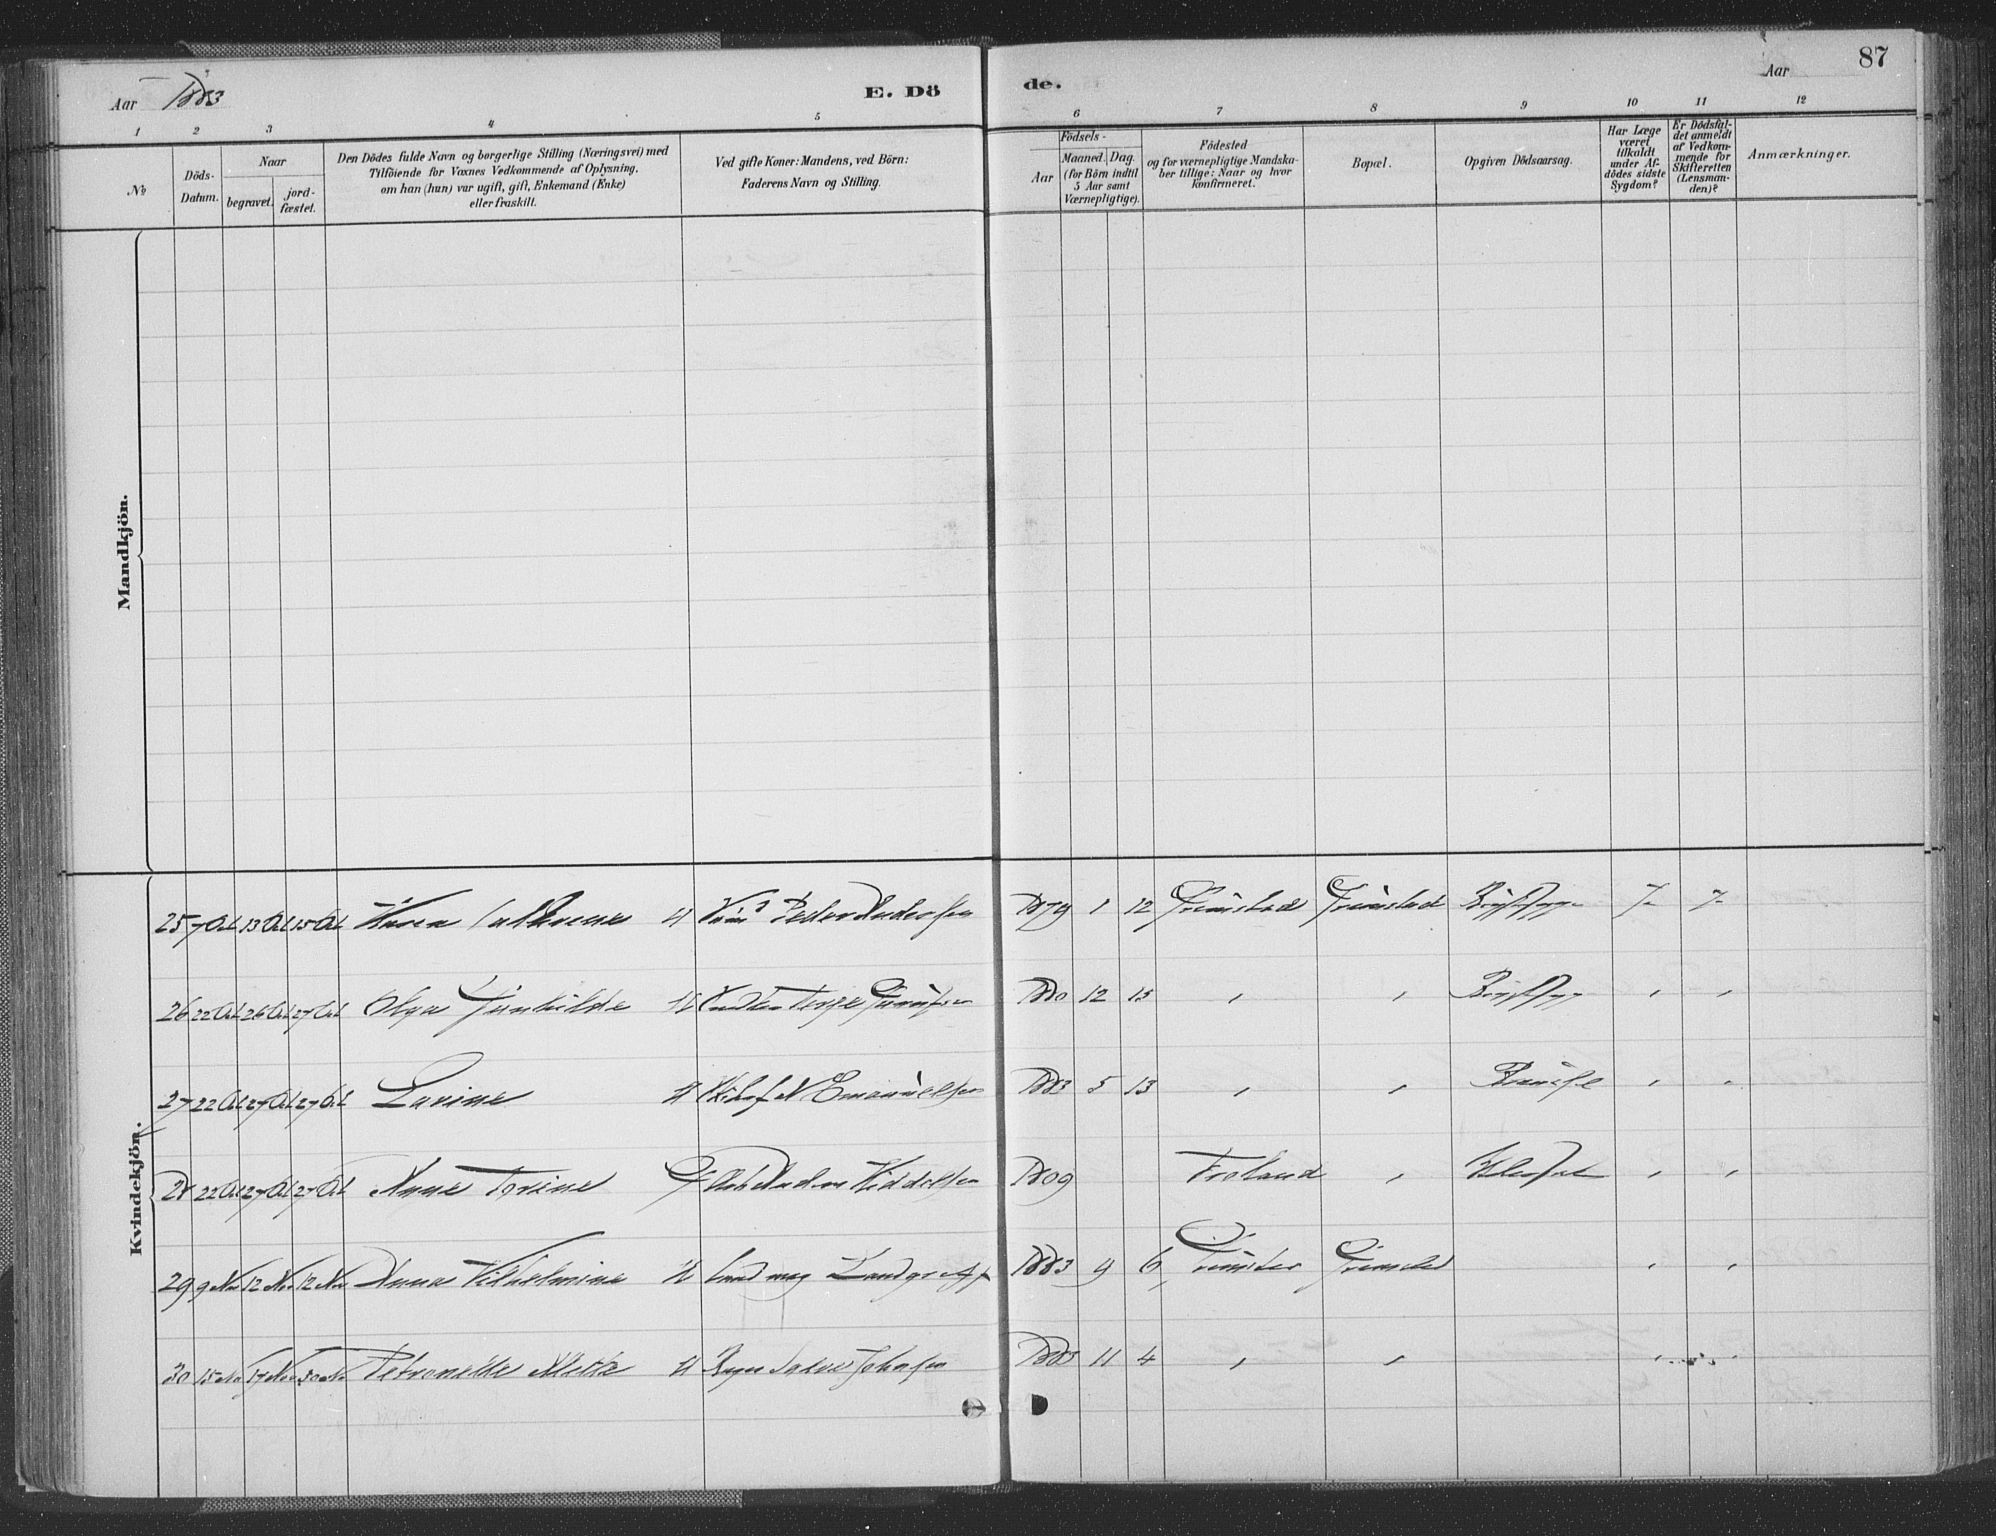 Aar 1883
E. Dö
de.
Aar
87
1 2 3 4 5 6 7 8 9 10 11 12
No
Döds-
Datum.
Naar
begravet.
jord-
fæstet.
Den Dödes fulde Navn og borgerlige Stilling (Næringsvei) med
Tilföiende for Voxnes Vedkommende af Oplysning,
om han (hun) var ugift, gift, Enkemand (Enke)
eller fraskilt.
Ved gifte Koner: Mandens, ved Börn:
Faderens Navn og Stilling.
Födsels-
Aar
Maaned. Dag.
(for Börn indtil
5 Aar samt
Værnepligtige).
Födested
og for værnepligtige Mandska-
ber tillige: Naar og hvor
konfirmeret.
Bopæl.
Opgiven Dödsaarsag.
Har Læge
været
tilkaldt
under Af-
dödes sidste
Sygdom?
Er Dödsfal-
det anmeldt
af Vedkom-
mende for
Skifteretten
(Lensman-
den)?
Anmærkninger.
Mandkjön.
Kvindekjön.
25 7 Oct 13 Oct 15 Oct Karen U Peder Andersen 1879 1 12 Grimstad Grimstad J J
26 22 Oct 26 Oct 27 Oct Olga Gunhilde U Terje 1880 12 13 " " " "
27 22 Oct 27 Oct 27 Oct Lavine U N Emanuelsen 1883 5 13 " " " "
28 22 Oct 27 Oct 27 Oct Anne Torine G 1809 Froland " " "
29 9 Nov 12 Nov 12 Nov Anna Vilhelmine U Landgraff 1883 9 6 Grimstad Grimstad " "
30 15 Nov 17 Nov 30 Nov Petronelle Mette U Johnsen 1883 11 4 " " " "